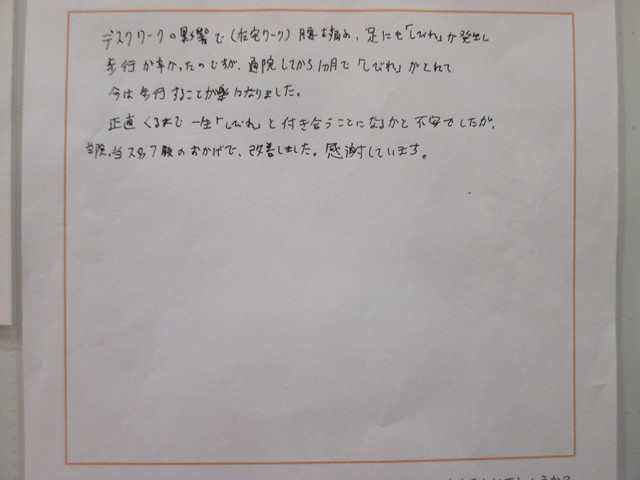 デスクワークの影響で(在宅ワーク)腰を痛め、足にも「しびれ」が発出し
歩行が辛かったのですが、通院してから1カ月で「しびれ」がとれて
今は歩行することが楽になりました。
正直くるまで一生「しびれ」と付き合うことになるかと不安でしたが、
当院、当スタッフ殿のおかげで、改善しました。感謝しています。